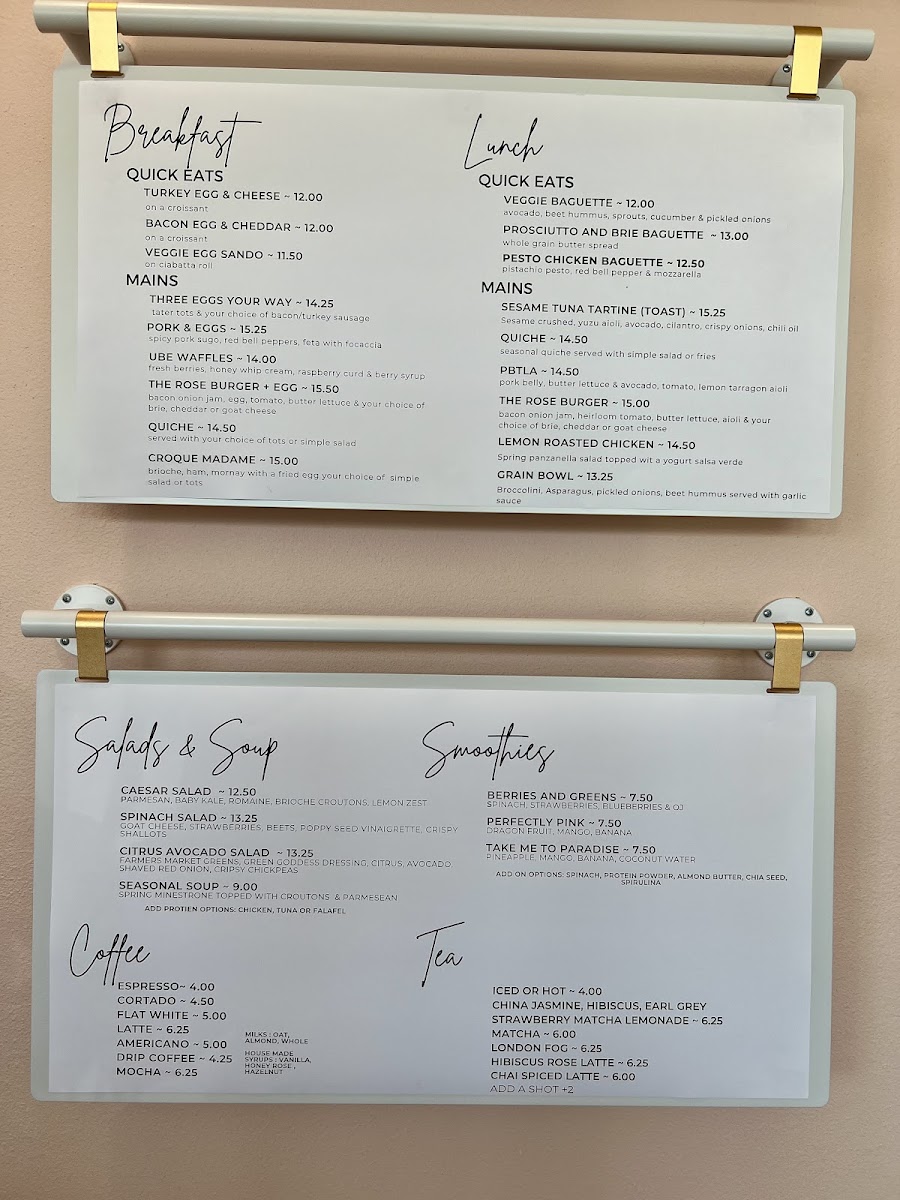 Breakfast
QUICK EATS
TURKEY EGG & CHEESE ~ 12.00
on a croissant
BACON EGG & CHEDDAR ~ 12.00
on a croissant
VEGGIE EGG SANDO ~ 11.50
on ciabatta roll
MAINS
THREE EGGS YOUR WAY ~ 14.25
tater tots & your choice of bacon/turkey sausage
PORK & EGGS ~ 15.25
spicy pork sugo, red bell peppers, feta with focaccia
UBE WAFFLES ~ 14.00
fresh berries, honey whip cream, raspberry curd & berry syrup
THE ROSE BURGER + EGG ~ 15.50
bacon onion jam, egg, tomato, butter lettuce & your choice of
brie, cheddar or goat cheese
QUICHE ~ 14.50
served with your choice of tots or simple salad
CROQUE MADAME ~ 15.00
brioche, ham, mornay with a fried egg your choice of simple
salad or tots
Lunch
QUICK EATS
VEGGIE BAGUETTE ~ 12.00
avocado, beet hummus, sprouts, cucumber & pickled onions
PROSCIUTTO AND BRIE BAGUETTE ~ 13.00
whole grain butter spread
PESTO CHICKEN BAGUETTE ~ 12.50
pistachio pesto, red bell pepper & mozzarella
MAINS
SESAME TUNA TARTINE (TOAST) ~ 15.25
Sesame crushed, yuzu aioli, avocado, cilantro, crispy onions, chili oil
QUICHE ~ 14.50
seasonal quiche served with simple salad or fries
PBTLA ~ 14.50
pork belly, butter lettuce & avocado, tomato, lemon tarragon aioli
THE ROSE BURGER ~ 15.00
bacon onion jam, heirloom tomato, butter lettuce, aioli & your
choice of brie, cheddar or goat cheese
LEMON ROASTED CHICKEN ~ 14.50
Spring panzanella salad topped wit a yogurt salsa verde
GRAIN BOWL ~ 13.25
Broccolini, Asparagus, pickled onions, beet hummus served with garlic
sauce
Salads & Soup
CAESAR SALAD ~ 12.50
PARMESAN, BABY KALE, ROMAINE, BRIOCHE CROUTONS, LEMON ZEST
SPINACH SALAD ~ 13.25
GOAT CHEESE, STRAWBERRIES, BEETS, POPPY SEED VINAIGRETTE, CRISPY
SHALLOTS
CITRUS AVOCADO SALAD ~ 13.25
FARMERS MARKET GREENS, GREEN GODDESS DRESSING, CITRUS, AVOCADO
SHAVED RED ONION, CRIPSY CHICKPEAS
SEASONAL SOUP ~ 9.00
SPRING MINESTRONE TOPPED WITH CROUTONS & PARMESEAN
ADD PROTIEN OPTIONS: CHICKEN, TUNA OR FALAFEL
Smoothies
BERRIES AND GREENS ~ 7.50
SPINACH, STRAWBERRIES, BLUEBERRIES & OJ
PERFECTLY PINK ~ 7.50
DRAGON FRUIT, MANGO, BANANA
TAKE ME TO PARADISE ~ 7.50
PINEAPPLE, MANGO, BANANA, COCONUT WATER
ADD ON OPTIONS: SPINACH, PROTEIN POWDER, ALMOND BUTTER, CHIA SEED,
SPIRULINA
Coffee
ESPRESSO~ 4.00
CORTADO ~ 4.50
FLAT WHITE ~ 5.00
LATTE ~ 6.25
AMERICANO ~ 5.00
DRIP COFFEE ~ 4.25
MOCHA ~ 6.25
MILKS : OAT,
ALMOND, WHOLE
HOUSE MADE
SYRUPS : VANILLA,
HONEY ROSE ,
HAZELNUT
Tea
ICED OR HOT ~ 4.00
CHINA JASMINE, HIBISCUS, EARL GREY
STRAWBERRY MATCHA LEMONADE ~ 6.25
MATCHA ~ 6.00
LONDON FOG ~ 6.25
HIBISCUS ROSE LATTE ~ 6.25
CHAI SPICED LATTE ~ 6.00
ADD A SHOT +2